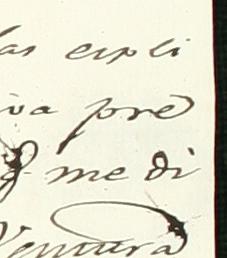 las espli
iva pre
me di
Ventura